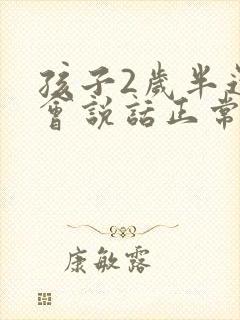 孩子2歲半
會說話正常
康敏露